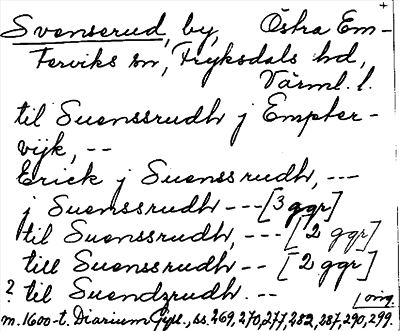 Svenserud, by, Östra Em-
terviks sn, Fryksdals hd,
Värml. l.
til Suenssrudh j Empter-
vijk, --
Erick j Suenssrudh, ---
j Suenssrudh --- [3 ggr]
til Suenssrudh, --- [2 ggr]
till Suenssrudh -- [2 ggr]
? til Suendzrudh. --
m. 1600-t. Diarium Gyll., ss. 269, 270, 277, 282, 287, 290, 299.